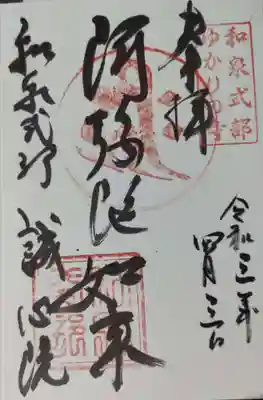 奉拝
和泉式部
ゆかりの寺
令和三年
四月三日
阿弥陀如来
和泉式部 誠心院